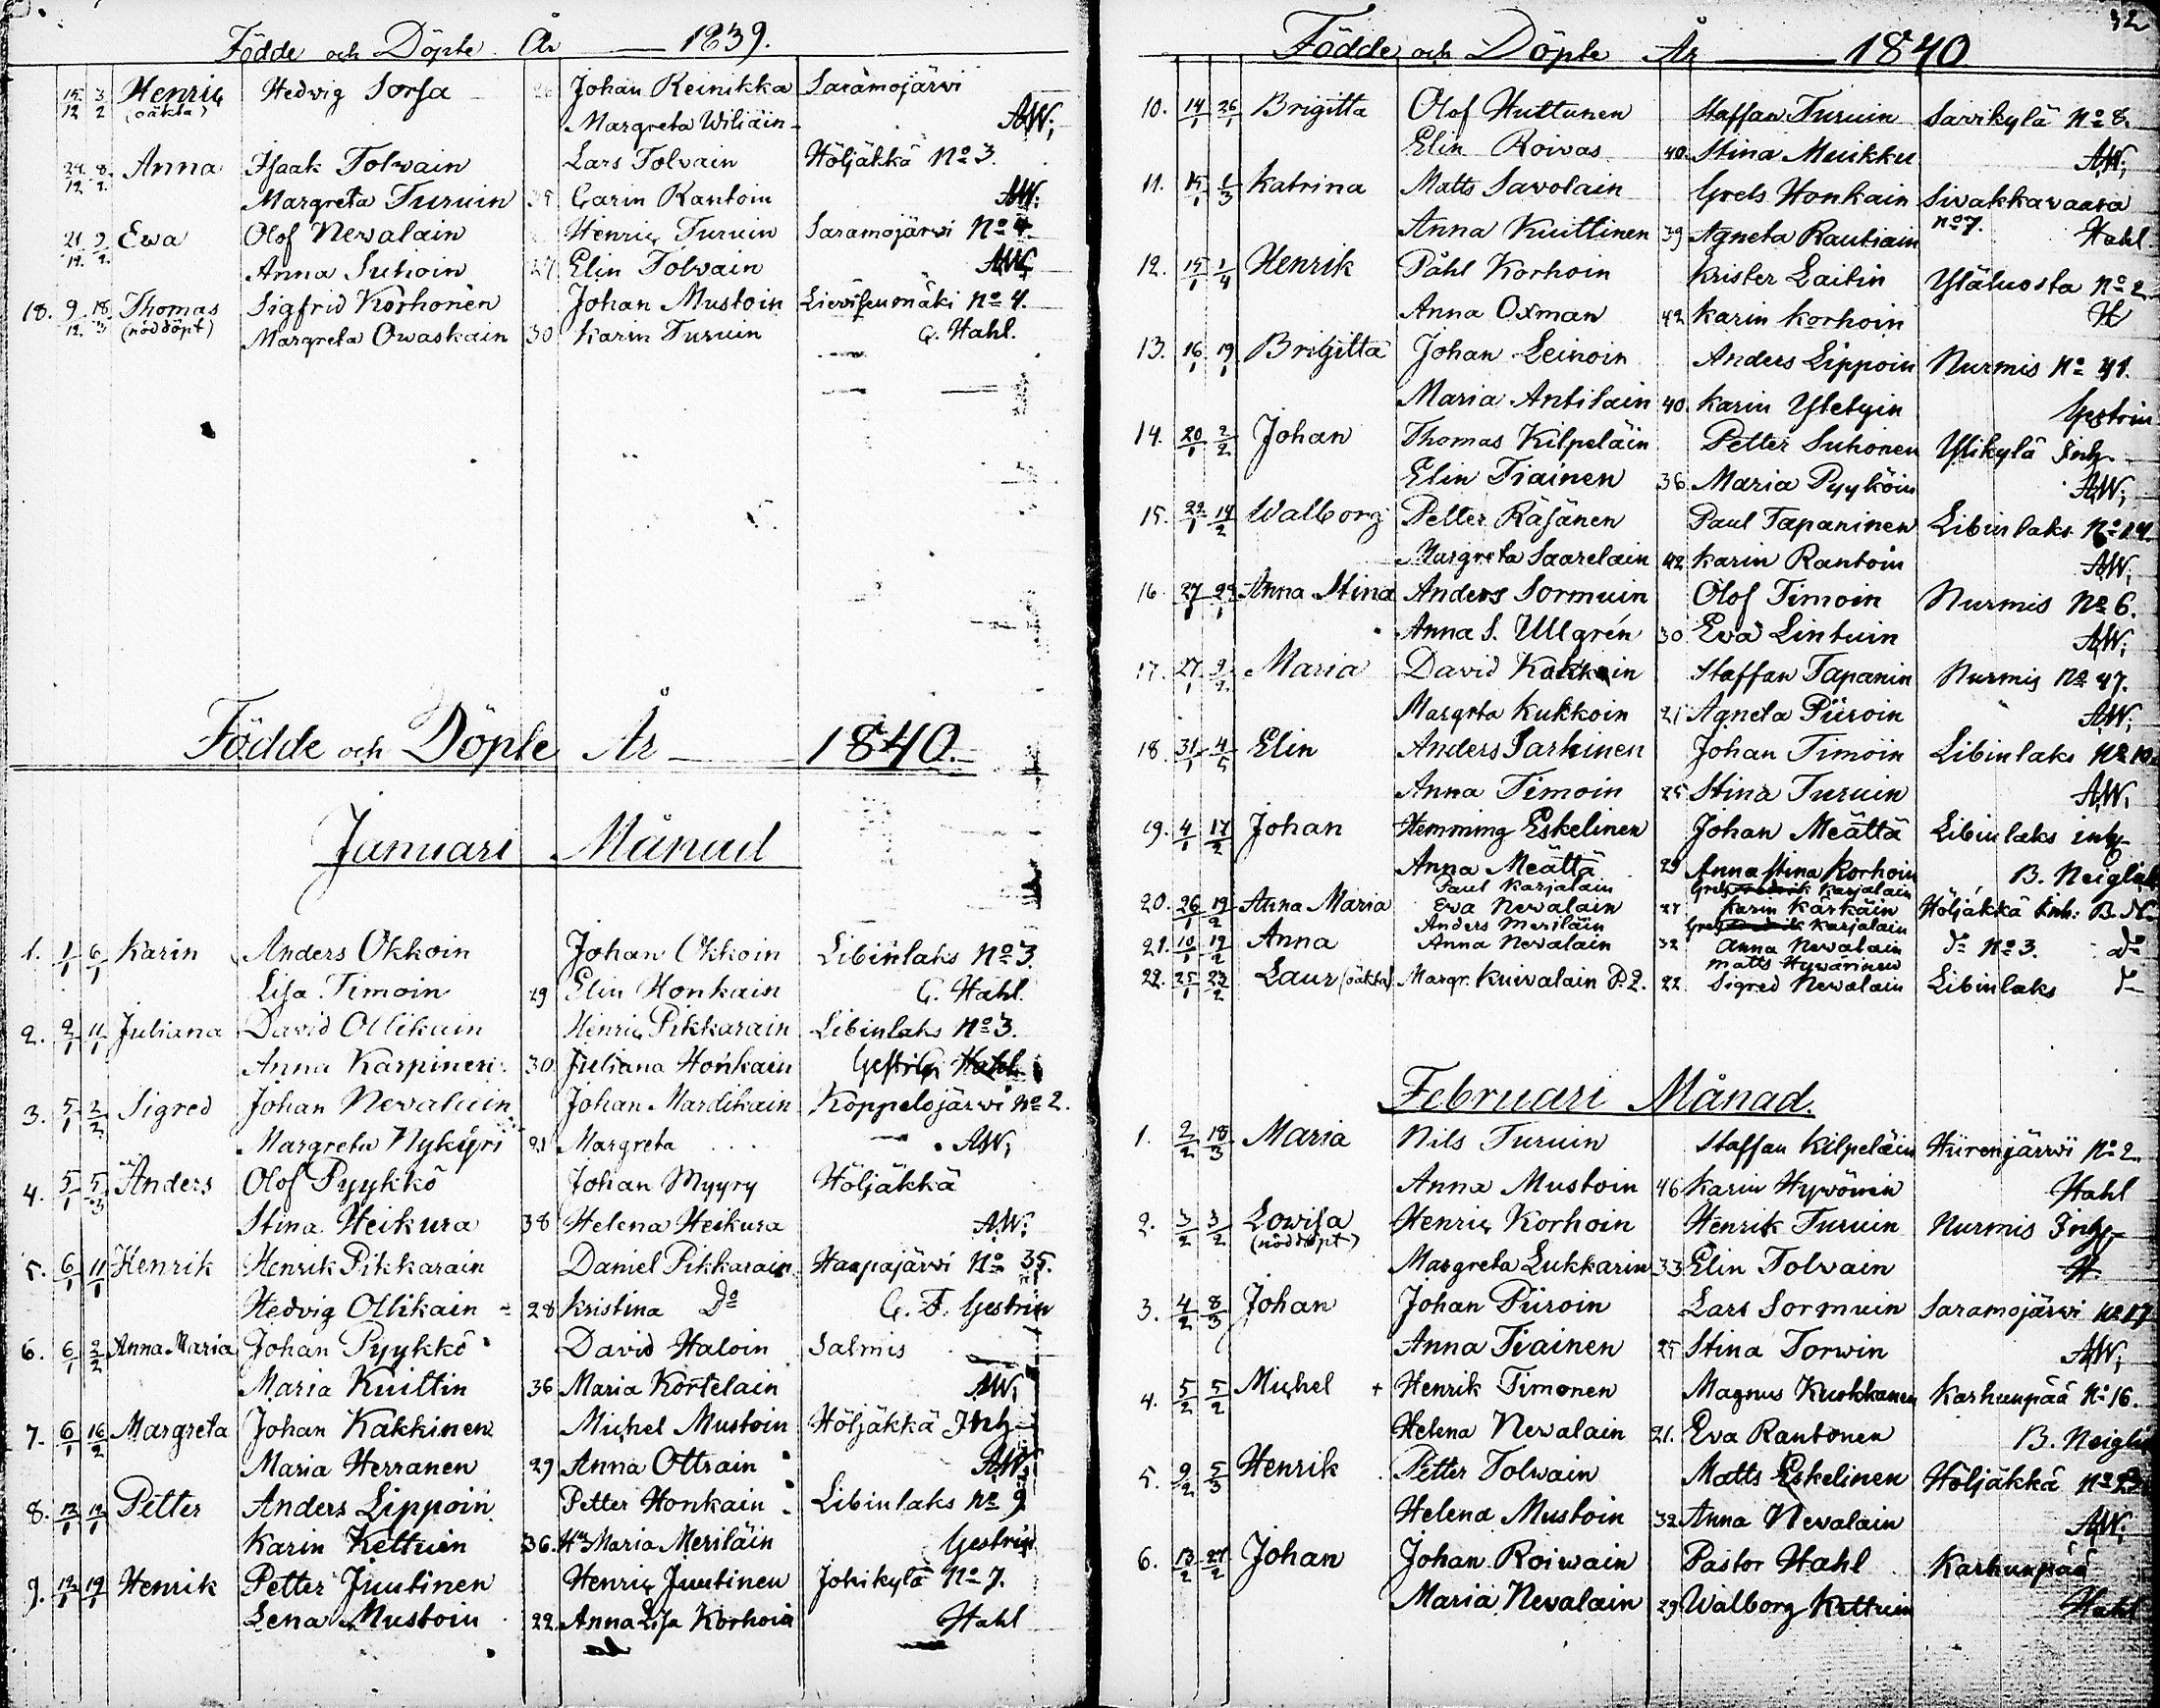 Födde och Döpte År 1839.
15/12 3/2 Henric Hedvig Sorsa 26 Johan Reinikka Saramojärvi
(oäkta) Margreta Wiliäin AW;
24/12 8/2 Anna Isaak Tolvain Lars Tolvain Höljäkkä No 3.
Margreta Turuin 35 Carin Rantoin AW:
21/12 9/2 Ewa Olof Nevalain Henric Turuin Saramojärvi No 4.
Anna Suhoin 27 Elin Tolvain AW;
18. 9/12 18/3 Thomas Sigfrid Korhonen Johan Mustoin Lievisenmäki No 4.
(nöddöpt) Margreta Ovaskain 30 Karin Turuin G. Hahl.
Födde och Döpte År 1840.
Januari Månad
1. 1/1 6/1 Karin Anders Okkoin Johan Okkoin Libinlaks No 3.
Lisa Timoin 29 Elin Honkain G. Hahl.
2. 2/1 11/1 Juliana David Ollikain Henric Pikkarain Libinlaks No 3.
Anna Karpinen 30 Juliana Honkain
3. 5/1 2/2 Sigred Johan Nevalain Johan Mardikain Koppelojärvi No 2.
Margreta Nykyri 21 Margreta AW;
4. 5/1 5/3 Anders Olof Pyykkö Johan Myyry Höljäkkä
Stina Heikura 38 Helena Heikura AW;
5. 6/1 11/1 Henrik Henrik Pikkarain Daniel Pikkarain Haapajärvi No 35.
Hedvig Ollikain 28 Kristina Do G. F. Gestrin
6. 6/1 2/2 Anna Maria Johan Pyykkö David Haloin Salmis
Maria Kuittin 36 Maria Kortelain AW;
7. 6/1 16/2 Margreta Johan Kakkinen Michel Mustoin Höljäkkä Inh
Maria Herranen 29 Anna Ottrain AW;
8. 12/1 12/1 Petter Anders Lippoin Petter Honkain Libinlaks No 9
Karin Kettuin 36. Hu Maria Meriläin Gestrin
9. 12/1 19/1 Henrik Petter Juutinen Henric Juutinen Johikylä No 7.
Lena Mustoin 22. Anna Lisa Korhoin Hahl
32
Födde och Döpte År 1840
10. 14/1 26/1 Brigitta Olof Huttunen Staffan Turuin Savikylä No 8.
Elin Roivas 40. Stina Muikku AW;
11. 15/1 1/3 Katrina Matts Savolain Grels Honkain Sivakkavaara
Anna Kuittinen 39 Agneta Rautiain No 7. Hahl
12. 15/1 1/4 Henrik Påhl Korhoin Krister Laitin Yläluosta No 2
Anna Oxman 42 Karin Korhoin H
13. 16/1 19/1 Brigitta Johan Leinoin Anders Lippoin Nurmis No 41.
Maria Antilain 40. Karin Gestrin
14. 20/1 2/2 Johan Thomas Kilpeläin Petter Suhonen Ylikylä Inh.
Elin Tiainen 36 Maria Pyyköin AW;
15. 22/1 14/2 Walborg Petter Räsänen Paul Tapaninen Libinlaks No 14.
Margreta Saarelain 42 Karin Rantoin AW;
16. 27/1 29/1 Anna Stina Anders Sormuin Olof Timoin Nurmis No 6.
Anna S. Ullgrén 30 Eva Lintuin AW;
17. 27/1 9/2 Maria David Staffan Tapanin Nurmis No 47.
Margrta Kukkoin 21 Agneta Piiroin AW;
18. 31/1 4/5 Elin Anders Sarkinen Johan Timoin Libinlaks No 10.
Anna Timoin 25 Stina Turuin AW;
19. 4/1 17/2 Johan Hemming Eskelinen Johan Meättä Libinlaks inh
Anna Meättä 29 Anna Stina Korhoin B. Neiglick
Paul Karjalain Grels Karjalain
20. 26/1 19/2 Anna Maria Eva Nevalain 27 Karin Kärkäin Höljäkkä Inh: B. N.
Anders Meriläin Grels Karjalain
21. 10/1 19/2 Anna Anna Nevalain 32 Anna Nevalain do No 3. do
Matts Hyvärinen
22. 25/1 23/2 Laur (oäkta) Margr. Kuivalain P.Q. 22. Sigred Nevalain Libinlaks do
Februari Månad.
1. 2/2 18/3 Maria Nils Turuin Staffan Kilpeläin Hiirenjärvi No 2.
Anna Mustoin 46 Karin Hyvönin Hahl
2. 3/2 3/2 Lovisa Henric Korhoin Henrik Turuin Nurmis Inh
(nöddöpt) Margreta Lukkarin 33 Elin Tolvain H.
3. 4/2 8/3 Johan Johan Piiroin Lars Sormuin Saramojärvi No 17
Anna Tiainen 25 Stina Torvin AW;
4. 5/2 5/2 Michel + Henrik Timonen Magnus Kuokkanen Karhunpää No 16.
Helena Nevalain 21. Eva Rantonen B. Neiglick
5. 9/2 5/3 Henrik Petter Tolvain Matts Eskelinen Höljäkkä
Helena Mustoin 32 Anna Nevalain AW;
6. 13/2 27/2 Johan Johan Roivain Pastor Hahl Karhunpää
Maria Nevalain 29 Walborg Kettuin Hahl